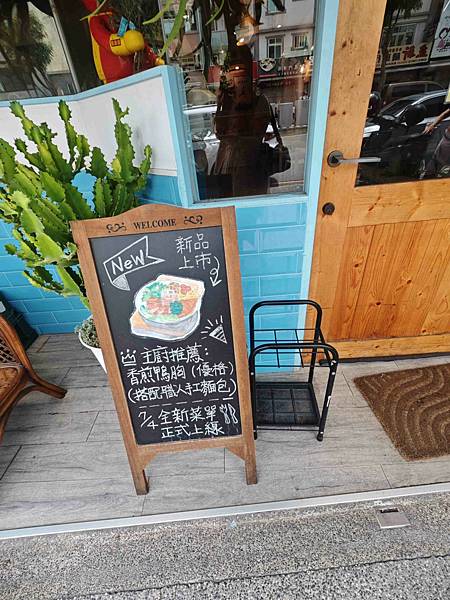 WELCOME
NEW
新品
上市
主廚推薦:
香煎鴨胸(優格)
(搭配職人手工麵包)
7/4全新菜單
正式上線